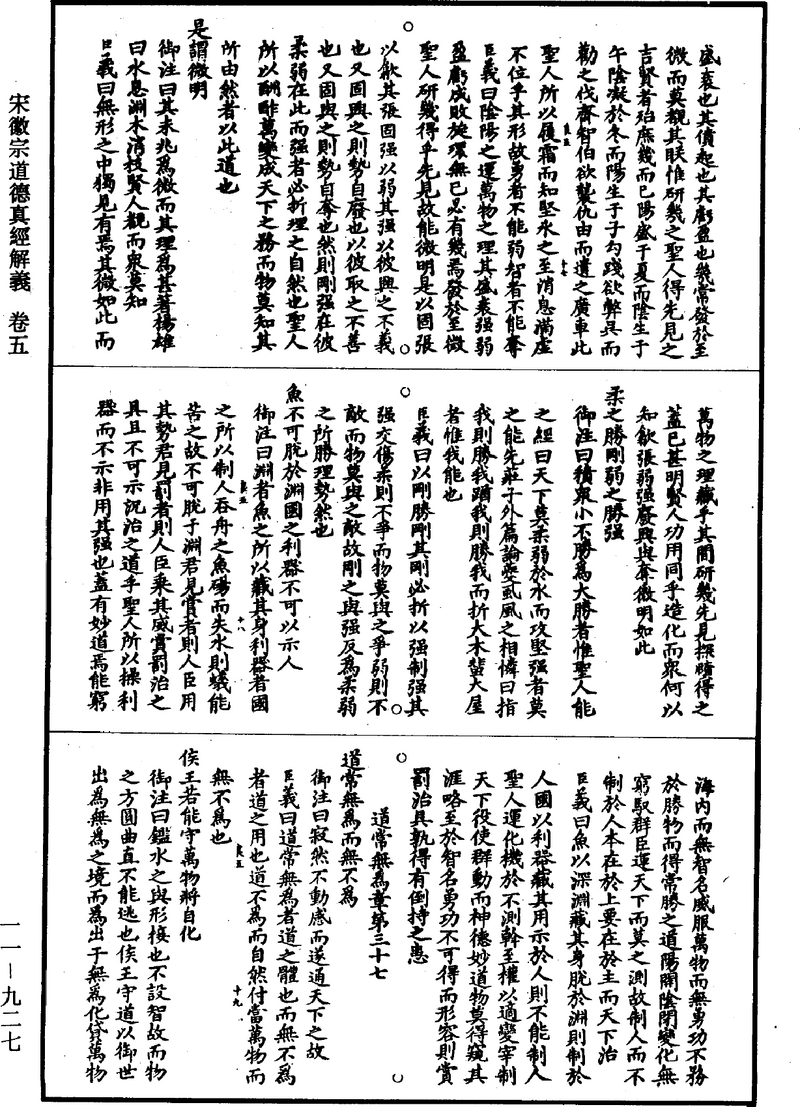 宋徽宗道德真經解義　卷五
盛衰也其僨起也其虧盈也幾常發於至
微而莫覩其眹惟研幾之聖人得先見之
吉賢者殆庶幾而已陽盛于夏而陰生于
午陰凝於冬而陽生于子勾踐欲弊吳而
勸之伐齊智伯欲襲仇由而遺之廣車此
聖人所以履霜而知堅氷之至消息滿虛
不位乎其形故勇者不能弱智者不能奪
臣義曰陰陽之運萬物之理其盛衰强弱
盈虧成敗旋環無已必有幾焉發於至微
聖人研幾得乎先見故能微明是以固張
以歙其張固强以弱其强以彼興之不義
也又固與之則勢自廢也以彼取之不善
也又固與之則勢自奪也然則剛强在彼
柔弱在此而强者必折理之自然也聖人
所以酬酢萬變成天下之務而物莫知其
所由然者以此道也
是謂微明
御注曰其未兆爲微而其理爲甚著楊雄
曰水息淵木消枝賢人覩而衆莫知
臣義曰無形之中獨見有焉其微如此而
萬物之理藏乎其間研幾先見探賾得之
蓋已甚明賢人功用同乎造化而衆何以
知歙張弱强廢興與奪微明如此
柔之勝剛弱之勝强
御注曰積衆小不勝爲大勝者惟聖人能
之經曰天下莫柔弱於水而攻堅强者莫
之能先莊子外篇論夔虱風之相憐曰指
我則勝我蹈我則勝我而折大木蜚大屋
者惟我能也
臣義曰以剛勝剛其剛必折以强制强其
强交傷柔則不爭而物莫與之爭弱則不
敵而物莫與之敵故剛之與强反爲柔弱
之所勝理勢然也
魚不可脱於淵國之利器不可以示人
御注曰淵者魚之所以藏其身利器者國
之所以制人吞舟之魚碭而失水則蟻能
苦之故不可脱于淵君見賞者則人臣用
其勢君見罰者則人臣乘其威賞罰治之
具且不可示况治之道乎聖人所以操利
器而不示非用其强也蓋有妙道焉能窮
海内而無智名威服萬物而無勇功不務
於勝物而得常勝之道陽開陰閉變化無
窮馭群臣運天下而莫之測故制人而不
制於人本在於上要在於主而天下治
臣義曰魚以深淵藏其身脱於淵則制於
人國以利器藏其用示於人則不能制人
聖人運化機於不測斡至權以適變宰制
天下役使群動而神德妙道物莫得窺其
涯略至於智名勇功不可得而形容則賞
罰治具孰得有倒持之患
道常無爲章第三十七
道常無爲而無不爲
御注曰寂然不動感而遂通天下之故
臣義曰道常無爲者道之體也而無不爲
者道之用也道不爲而自然付當萬物而
無不爲也
侯王若能守萬物將自化
御注曰鑑水之與形接也不設智故而物
之方圓曲直不能逃也侯王守道以御世
出爲無爲之境而爲出于無爲化貸萬物
一一－九二七